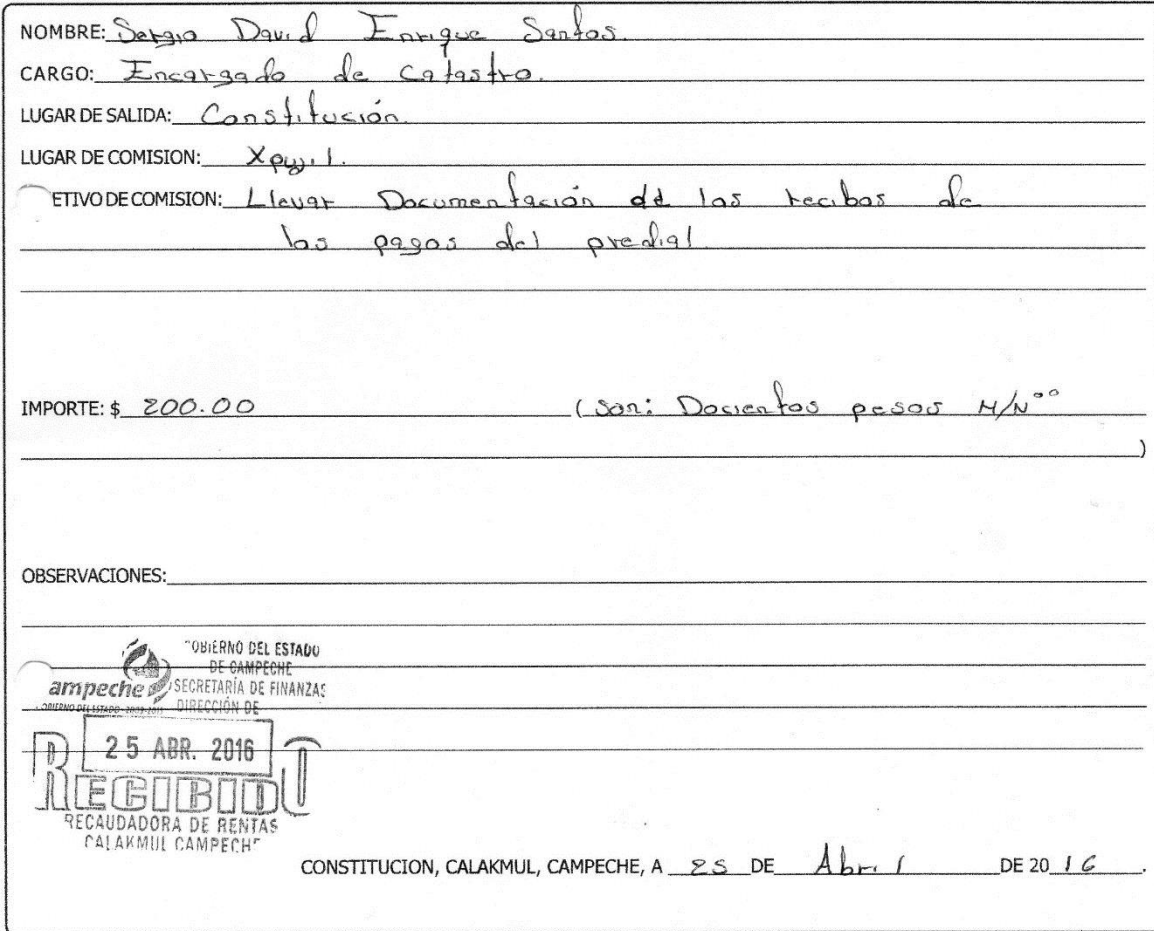 NOMBRE: Sergio David Enrique Santos.
CARGO: Encargado de Catastro.
LUGAR DE SALIDA: Constitución.
LUGAR DE COMISION: Xpujil.
ETIVO DE COMISION: Llevar Documentación de los recibos de
los pagos del predial
IMPORTE: $ 200.00 (Son: Docientos pesos M/N°°
)
OBSERVACIONES:
OBIERNO DEL ESTADO
DE CAMPECHE
ampeche SECRETARÍA DE FINANZAS
OBIERNO DEL ESTADO DIRECCIÓN DE
25 ABR. 2016
RECIBIDO
RECAUDADORA DE RENTAS
CALAKMUL CAMPECHE
CONSTITUCION, CALAKMUL, CAMPECHE, A 25 DE Abril DE 2016.